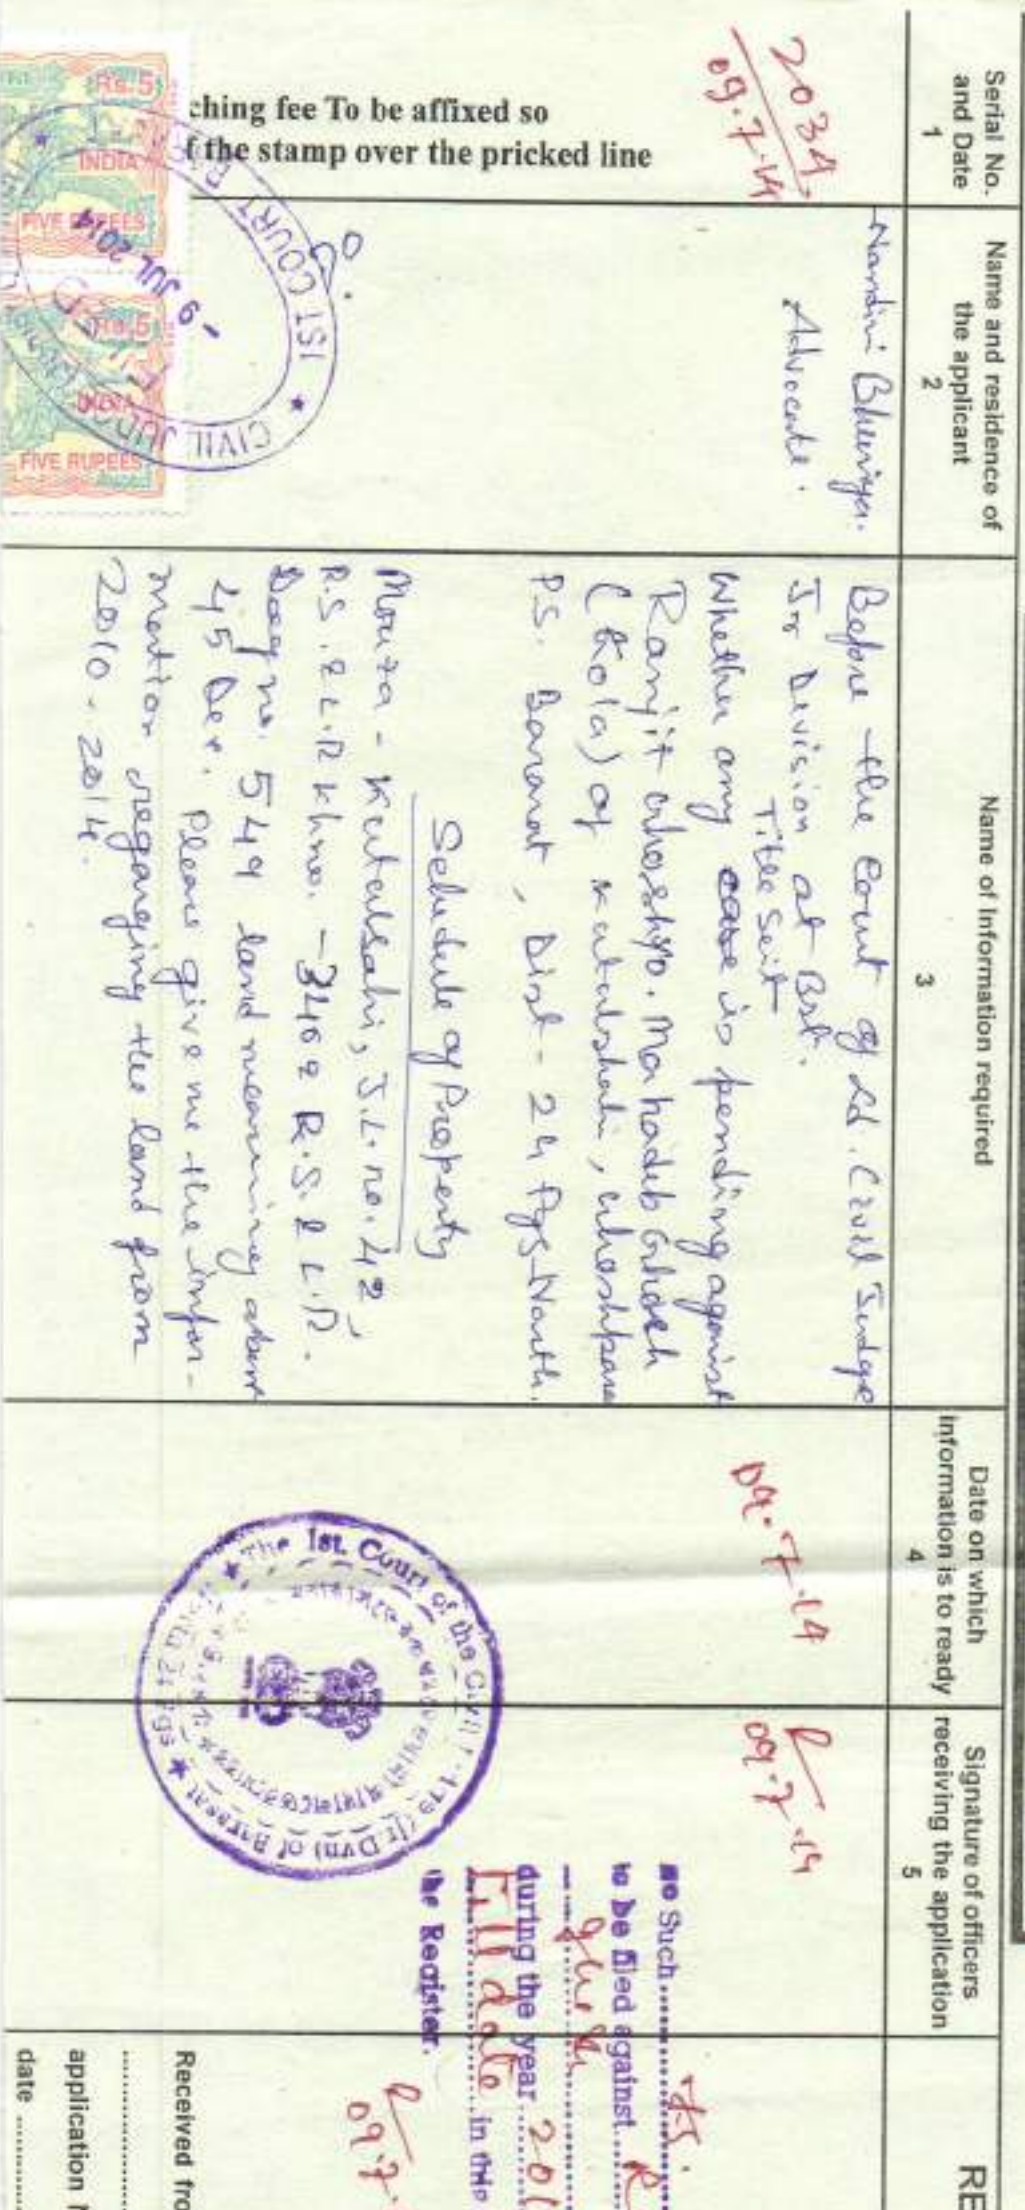 Serial No.
and Date
1
Name and residence of
the applicant
2
Name of Information required
3
Date on which
information is to ready
4
Signature of officers
receiving the application
5
RE
2034
09.7.14
Nandini Bhuniya.
Advocate.
Before the Court of Ld. Civil Judge
Jr Devision at Bst.
Title Suit
Whether any case is pending against
Ranjit Ghosh S/o. Mahadeb Ghosh
(Kola) of Kutulshahi, Ghoshpara
P.S. Barasat, Dist- 24 Pgs-North.
Schedule of Property
Mouza - Kutulsahi, J.L. no. 42,
R.S. & L.R Kh no. - 340 & R.S. & L.R.
Dag no. 549 land measuring about
45 Dec. Please give me the infor-
mation regarging the land from
2010-2014.
09.7.14
09.7.14
no Such ........ T.S.
to be filed against ..... R
Ghosh
during the year ... 201
Till date ... in this
the Register.
09.7.
Received fro
application
date ............
ching fee To be affixed so
f the stamp over the pricked line
Rs. 5
INDIA
FIVE RUPEES
Rs. 5
INDIA
FIVE RUPEES
CIVIL JUDGE ★ 1ST COURT
- 9 JUL 2014
★ The 1st. Court of the Civil (Jr Dvn) of Barasat ★ 24 Pgs